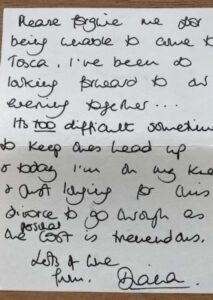 Please forgive me for
being unable to come to
Tosca. I've been so
looking forward to our
evening together...
It's too difficult sometimes
to keep ones head up
& today I'm on my knees
& just longing for this
divorce to go through as
the possible cost is tremendous.
Lots of love
from,
Diana.